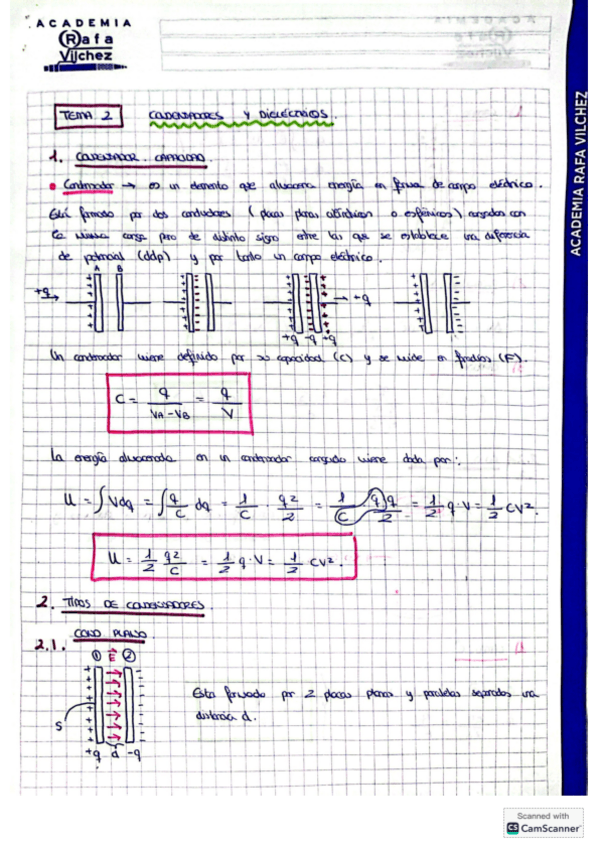 ACADEMIA
Rafa
Vilchez
ACADEMIA RAFA VILCHEZ
TEMA 2
CONDENSADORES Y DIELÉCTRICOS.
1. CONDENSADOR. CAPACIDAD.
• Condensador → es un elemento que almacena energía en forma de campo eléctrico.
Está formado por dos conductores (placas planas cilíndricas o esféricas) cargados con
la misma carga pero de distinto signo entre las que se establece una diferencia
de potencial (ddp) y por tanto un campo eléctrico.
A B
+q
+q
+q -q +q
Un condensador viene definido por su capacidad (C) y se mide en faradios (F).
C = q / VA - VB = q / V
La energía almacenada en un condensador cargado viene dada por:
U = ∫ V dq = ∫ q/C dq = 1/C · q²/2 = 1/C q q/2 = 1/2 q · V = 1/2 CV².
U = 1/2 q²/C = 1/2 q · V = 1/2 CV².
2. TIPOS DE CONDENSADORES.
2.1. COND PLANO.
1 E 2
Esta formado por 2 placas planas y paralelas separadas una
distancia d.
S
+q d -q
Scanned with
CS CamScanner